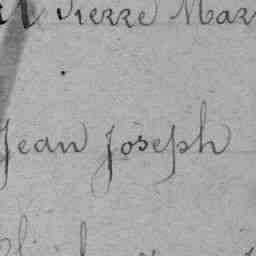 Pierre Mar
Jean Joseph